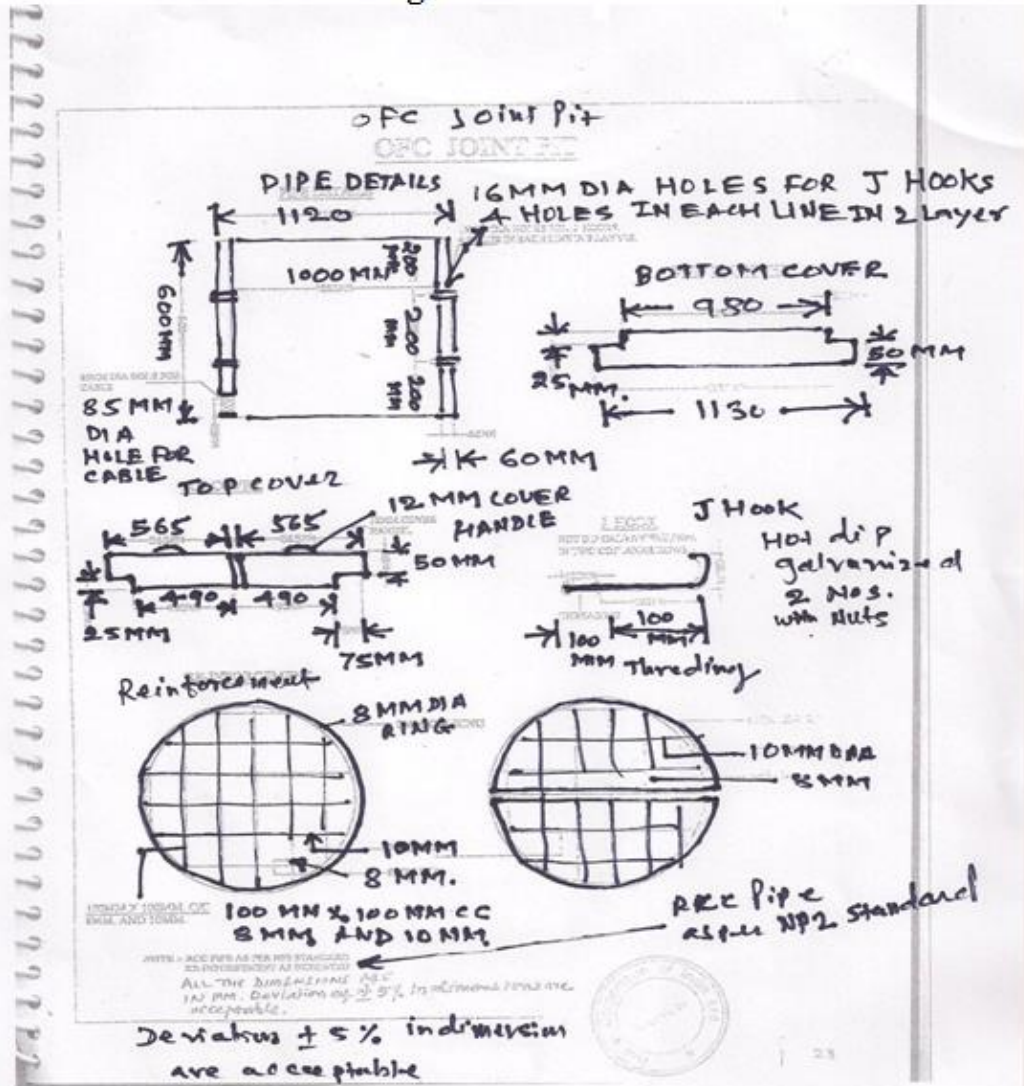 OFC Joint Pit
OFC JOINT PIT
PIPE DETAILS
1120
16MM DIA HOLES FOR J HOOKS
4 HOLES IN EACH LINE IN 2 Layer
1000MM
600MM
200 MM
200 MM
200 MM
85MM
DIA
HOLE FOR
CABLE
60MM
BOTTOM COVER
980
25MM.
50MM
1130
TOP COVER
565
565
12MM COVER
HANDLE
50MM
490
490
25MM
75MM
J Hook
J HOOK
Hot dip
galvanized
2 Nos.
with Nuts
100
MM
100
MM
Threding
Reinforcement
8MMDIA
RING
10MM
8MM.
10MMDIA
8MM
100 MM X 100 MM CC
8MM AND 10MM
RCC Pipe
as per NP2 standard
ALL THE DIMENSIONS ARE
IN MM. Deviation of ± 5% in dimensions are
acceptable.
Deviations ± 5% in dimersion
are acceptable
23